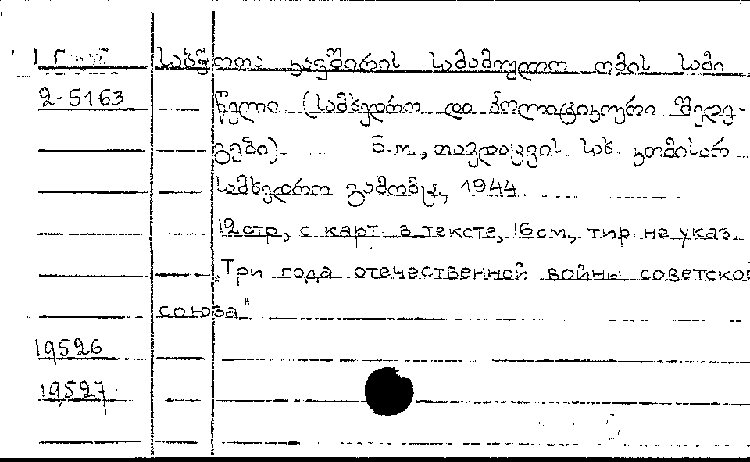 საბჭოთა კავშირის სამამულო ომის სამი
2-5163 წელი (სამხედრო და პოლიტიკური შედე-
გები). Б.м., თავდაცვის სახ. კომისარ.
სამხედრო გამომც., 1944
12 стр, с карт. в тексте, 16см, тир. не указ.
"Три года отечественной войны советског
союза"
19526
19527